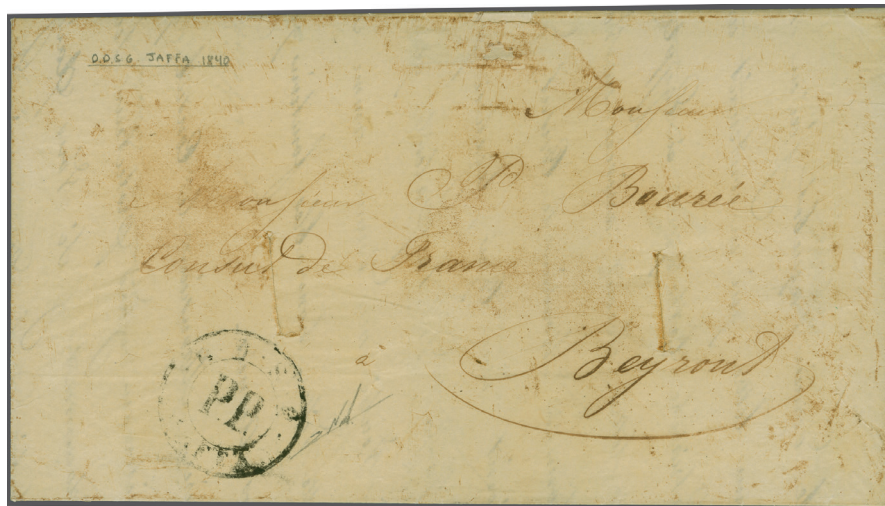 D.D.S.G. JAFFA 1840
Monsieur
Monsieur P. Bourée
Consul de France
à
Beyrout
PP.